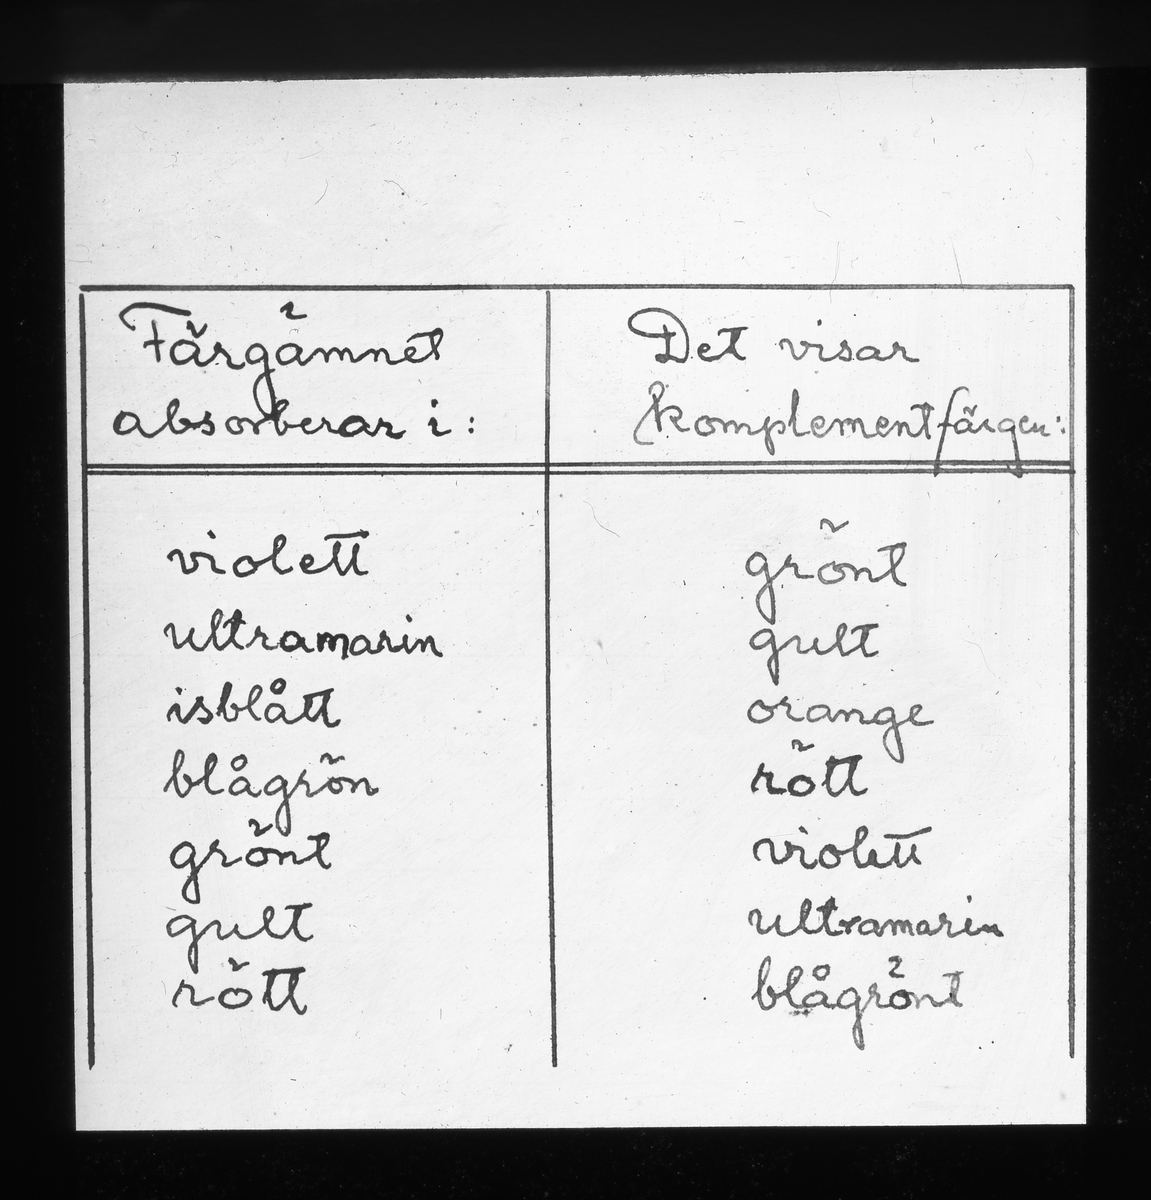 Färgämnet
absorberar i:
Det visar
komplementfärgen:
violett grönt
ultramarin gult
isblått orange
blågrön rött
grönt violett
gult ultramarin
rött blågrönt